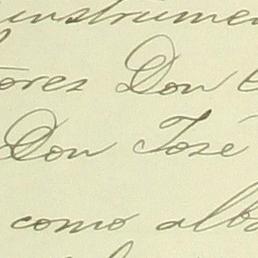 instrumen
ores Don
Don José
como alba